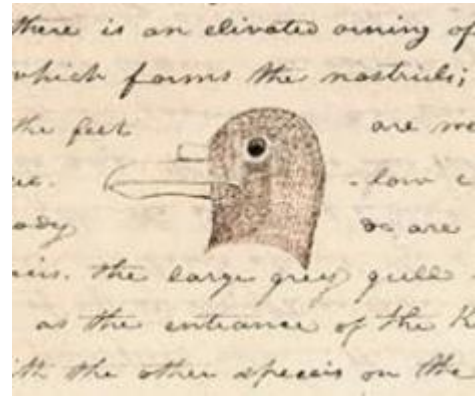 there is an elivated orning of
which forms the nostrils;
the feet are
low
are
the large grey gull
as the entrance of the
the other species on the